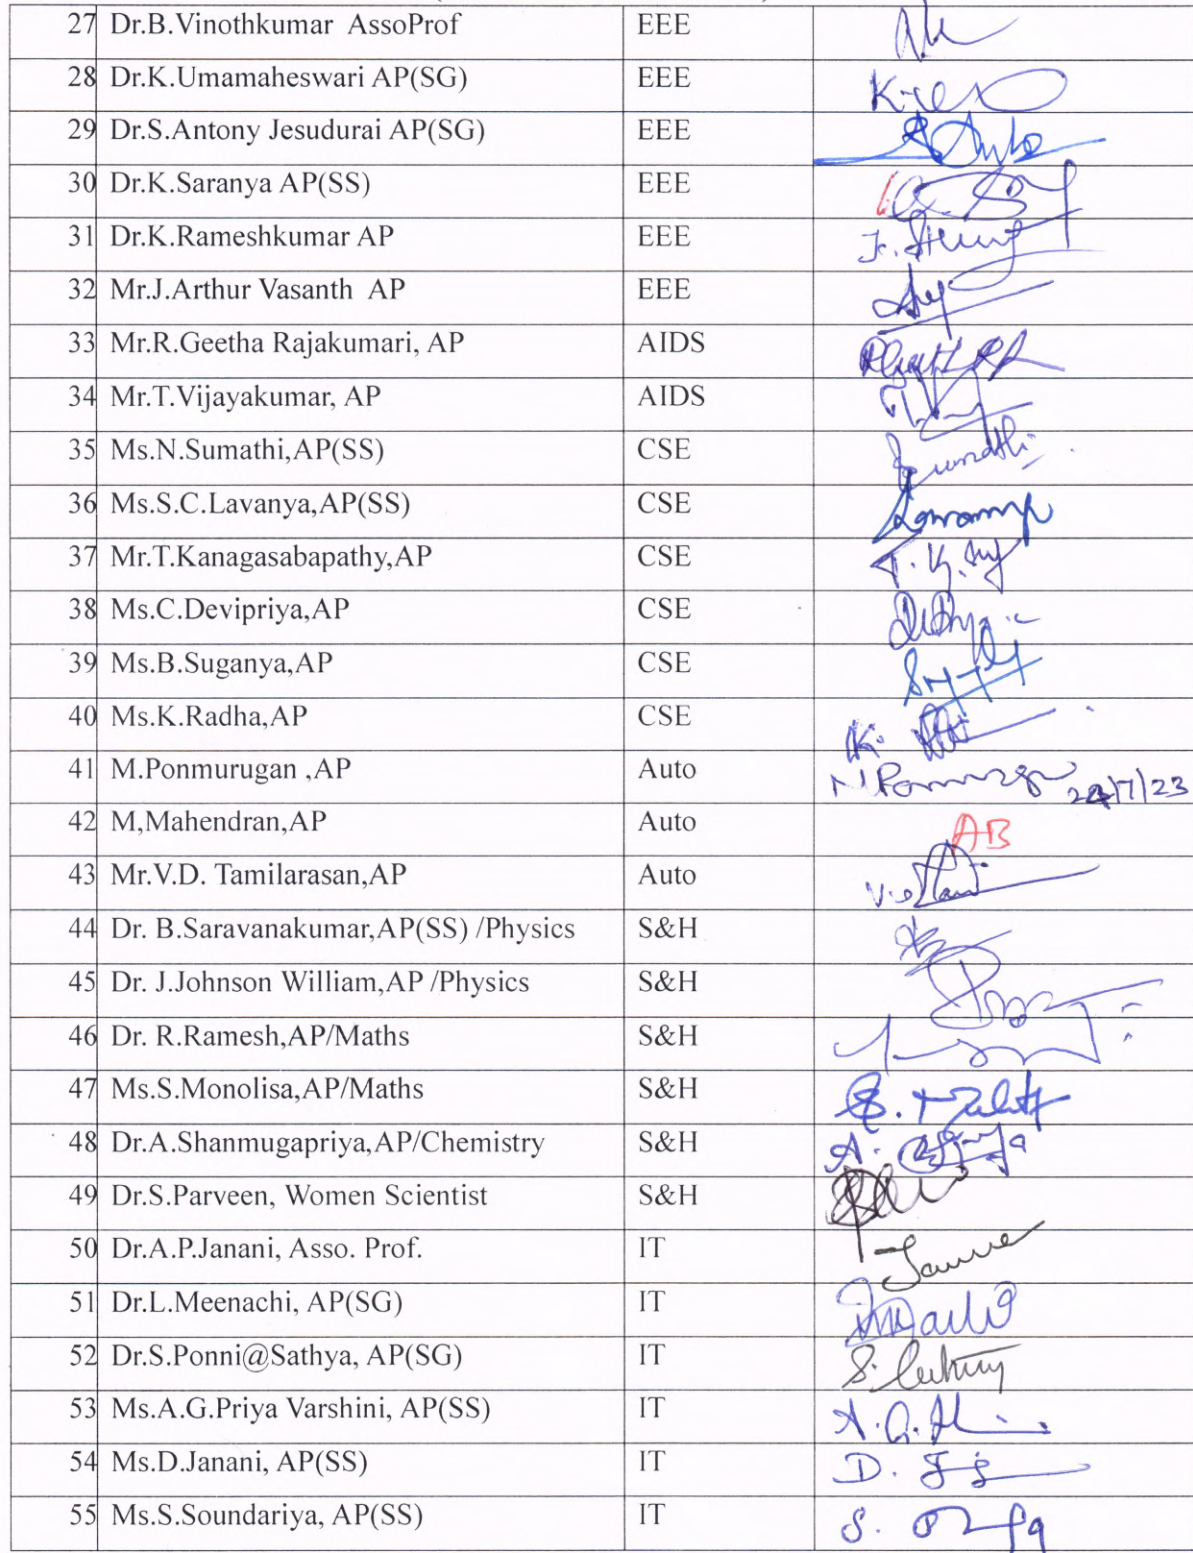 27 Dr.B.Vinothkumar AssoProf EEE
28 Dr.K.Umamaheswari AP(SG) EEE
29 Dr.S.Antony Jesudurai AP(SG) EEE
30 Dr.K.Saranya AP(SS) EEE
31 Dr.K.Rameshkumar AP EEE
32 Mr.J.Arthur Vasanth AP EEE
33 Mr.R.Geetha Rajakumari, AP AIDS
34 Mr.T.Vijayakumar, AP AIDS
35 Ms.N.Sumathi,AP(SS) CSE
36 Ms.S.C.Lavanya,AP(SS) CSE
37 Mr.T.Kanagasabapathy,AP CSE
38 Ms.C.Devipriya,AP CSE
39 Ms.B.Suganya,AP CSE
40 Ms.K.Radha,AP CSE
41 M.Ponmurugan ,AP Auto 24/7/23
42 M,Mahendran,AP Auto AB
43 Mr.V.D. Tamilarasan,AP Auto
44 Dr. B.Saravanakumar,AP(SS) /Physics S&H
45 Dr. J.Johnson William,AP /Physics S&H
46 Dr. R.Ramesh,AP/Maths S&H
47 Ms.S.Monolisa,AP/Maths S&H
48 Dr.A.Shanmugapriya,AP/Chemistry S&H
49 Dr.S.Parveen, Women Scientist S&H
50 Dr.A.P.Janani, Asso. Prof. IT
51 Dr.L.Meenachi, AP(SG) IT
52 Dr.S.Ponni@Sathya, AP(SG) IT
53 Ms.A.G.Priya Varshini, AP(SS) IT
54 Ms.D.Janani, AP(SS) IT
55 Ms.S.Soundariya, AP(SS) IT